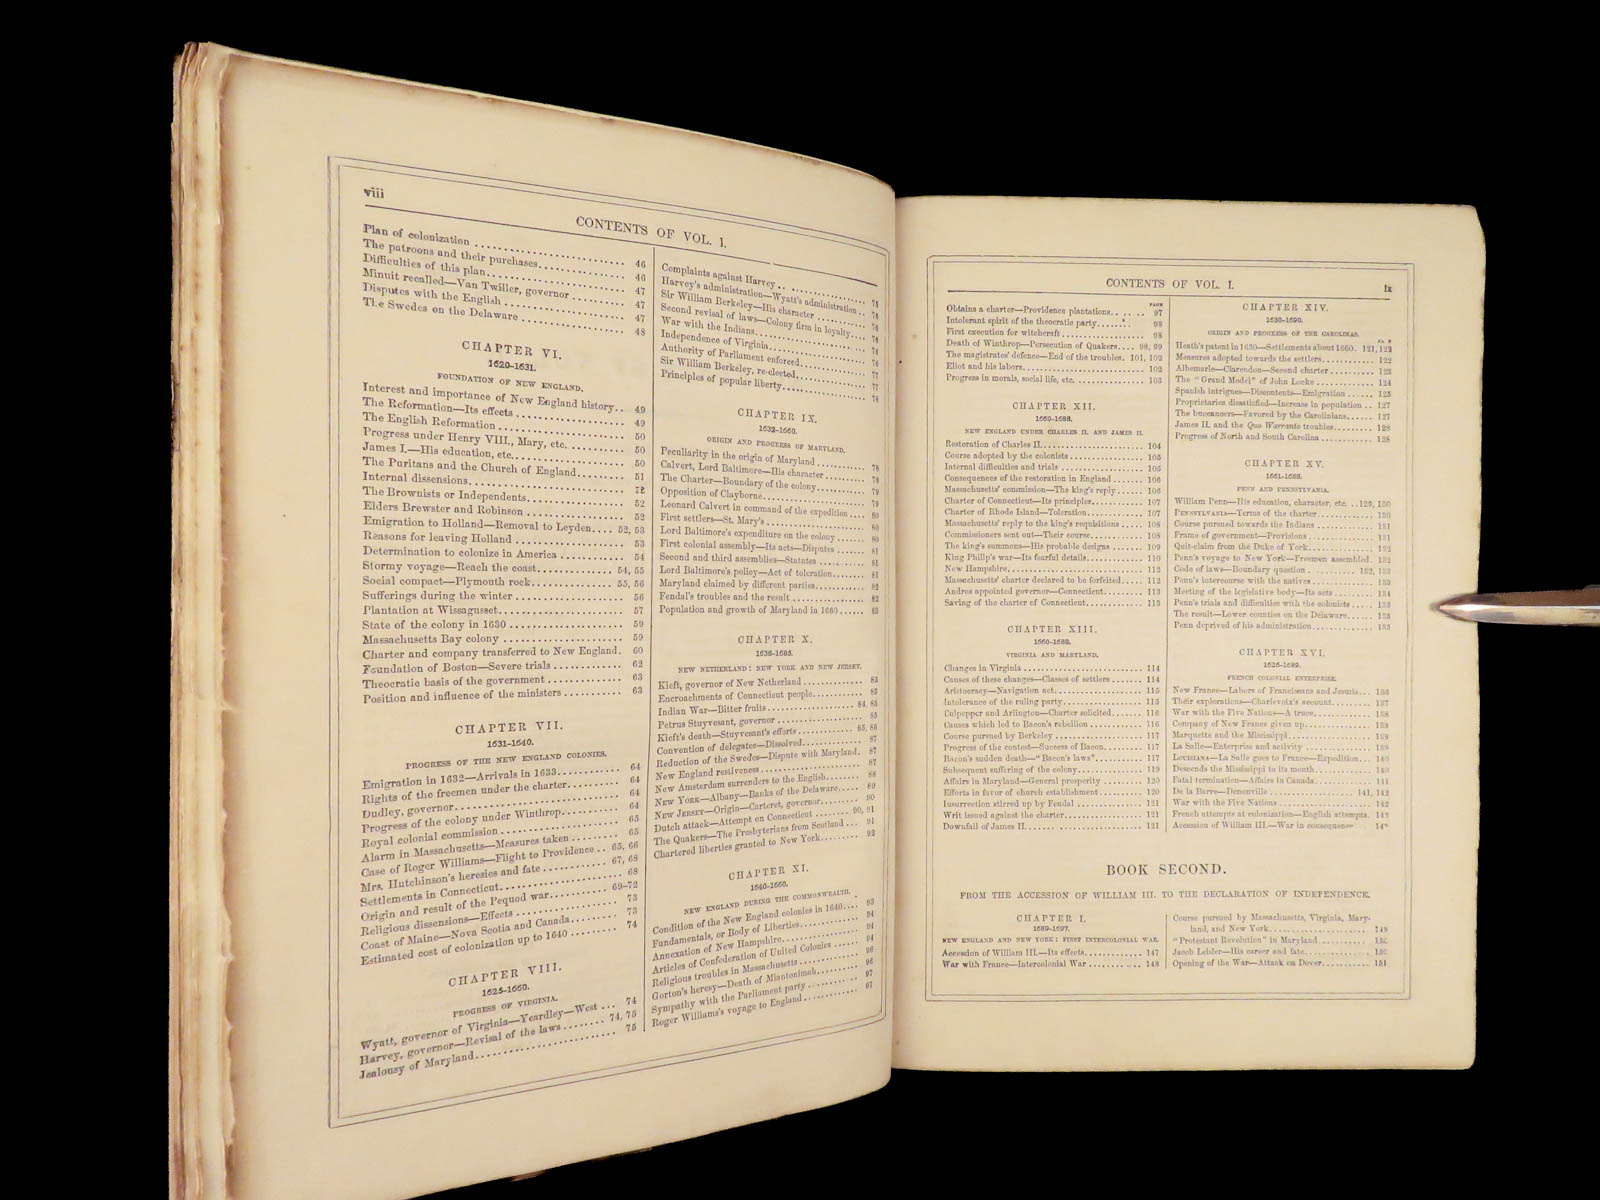 viii
CONTENTS OF VOL. I.
Plan of colonization ........ 46
The patroons and their purchases ........ 46
Difficulties of this plan ........ 47
Minuit recalled—Van Twiller, governor ........ 47
Disputes with the English ........ 47
The Swedes on the Delaware ........ 48
CHAPTER VI.
1620-1631.
FOUNDATION OF NEW ENGLAND.
Interest and importance of New England history.. 49
The Reformation—Its effects ........ 49
The English Reformation ........ 50
Progress under Henry VIII., Mary, etc. ........ 50
James I.—His education, etc. ........ 50
The Puritans and the Church of England ........ 51
Internal dissensions ........ 52
The Brownists or Independents ........ 52
Elders Brewster and Robinson ........ 52
Emigration to Holland—Removal to Leyden.... 52, 53
Reasons for leaving Holland ........ 53
Determination to colonize in America ........ 54
Stormy voyage—Reach the coast ........ 54, 55
Social compact—Plymouth rock ........ 55, 56
Sufferings during the winter ........ 56
Plantation at Wissagusset ........ 57
State of the colony in 1630 ........ 59
Massachusetts Bay colony ........ 59
Charter and company transferred to New England. 60
Foundation of Boston—Severe trials ........ 62
Theocratic basis of the government ........ 63
Position and influence of the ministers ........ 63
CHAPTER VII.
1631-1640.
PROGRESS OF THE NEW ENGLAND COLONIES.
Emigration in 1632—Arrivals in 1633 ........ 64
Rights of the freemen under the charter ........ 64
Dudley, governor ........ 64
Progress of the colony under Winthrop ........ 64
Royal colonial commission ........ 65
Alarm in Massachusetts—Measures taken ........ 65
Case of Roger Williams—Flight to Providence .. 65, 66
Mrs. Hutchinson's heresies and fate ........ 67, 68
Settlements in Connecticut ........ 68
Origin and result of the Pequod war ........ 69-72
Religious dissensions—Effects ........ 73
Coast of Maine—Nova Scotia and Canada ........ 73
Estimated cost of colonization up to 1640 ........ 74
CHAPTER VIII.
1625-1660.
PROGRESS OF VIRGINIA.
Wyatt, governor of Virginia—Yeardley—West ... 74
Harvey, governor—Revisal of the laws ........ 74, 75
Jealousy of Maryland ........ 75
Complaints against Harvey ........ 75
Harvey's administration—Wyatt's administration ..
Sir William Berkeley—His character ........
Second revisal of laws—Colony firm in loyalty ....
War with the Indians ........
Independence of Virginia ........ 76
Authority of Parliament enforced ........ 77
Sir William Berkeley, re-elected ........ 77
Principles of popular liberty ........ 78
CHAPTER IX.
1632-1660.
ORIGIN AND PROGRESS OF MARYLAND.
Peculiarity in the origin of Maryland ........ 78
Calvert, Lord Baltimore—His character ........ 78
The Charter—Boundary of the colony ........ 79
Opposition of Clayborne ........ 79
Leonard Calvert in command of the expedition .... 80
First settlers—St. Mary's ........ 80
Lord Baltimore's expenditure on the colony ........ 80
First colonial assembly—Its acts—Disputes ........ 81
Second and third assemblies—Statutes ........ 81
Lord Baltimore's policy—Act of toleration ........ 81
Maryland claimed by different parties ........ 82
Fendal's troubles and the result ........ 82
Population and growth of Maryland in 1660 ...... 83
CHAPTER X.
1638-1685.
NEW NETHERLAND: NEW YORK AND NEW JERSEY.
Kieft, governor of New Netherland ........ 83
Encroachments of Connecticut people ........ 83
Indian War—Bitter fruits ........ 84, 85
Petrus Stuyvesant, governor ........ 85
Kieft's death—Stuyvesant's efforts ........ 85, 86
Convention of delegates—Dissolved ........ 87
Reduction of the Swedes—Dispute with Maryland. 87
New England restiveness ........ 87
New Amsterdam surrenders to the English ........ 88
New York—Albany—Banks of the Delaware ..... 89
New Jersey—Origin—Carteret, governor ........ 90
Dutch attack—Attempt on Connecticut ........ 90, 91
The Quakers—The Presbyterians from Scotland ... 91
Chartered liberties granted to New York ........ 92
CHAPTER XI.
1640-1660.
NEW ENGLAND DURING THE COMMONWEALTH.
Condition of the New England colonies in 1640.... 93
Fundamentals, or Body of Liberties ........ 94
Annexation of New Hampshire ........ 94
Articles of Confederation of United Colonies ...... 94
Religious troubles in Massachusetts ........ 96
Gorton's heresy—Death of Miantonimoh ........ 96
Sympathy with the Parliament party ........ 97
Roger Williams's voyage to England ........ 97
CONTENTS OF VOL. I.
ix
PAGE
Obtains a charter—Providence plantations ...... 97
Intolerant spirit of the theocratic party ........ 98
First execution for witchcraft ........ 98
Death of Winthrop—Persecution of Quakers.... 98, 99
The magistrates' defence—End of the troubles. 101, 102
Eliot and his labors ........ 102
Progress in morals, social life, etc. ........ 103
CHAPTER XII.
1660-1688.
NEW ENGLAND UNDER CHARLES II. AND JAMES II.
Restoration of Charles II. ........ 104
Course adopted by the colonists ........ 105
Internal difficulties and trials ........ 105
Consequences of the restoration in England ...... 106
Massachusetts' commission—The king's reply ...... 106
Charter of Connecticut—Its principles ........ 107
Charter of Rhode Island—Toleration ........ 107
Massachusetts' reply to the king's requisitions ..... 108
Commissioners sent out—Their course ........ 108
The king's summons—His probable designs ...... 109
King Philip's war—Its fearful details ........ 110
New Hampshire ........ 112
Massachusetts' charter declared to be forfeited ..... 112
Andros appointed governor—Connecticut ........ 113
Saving of the charter of Connecticut ........ 113
CHAPTER XIII.
1660-1688.
VIRGINIA AND MARYLAND.
Changes in Virginia ........ 114
Causes of these changes—Classes of settlers ...... 114
Aristocracy—Navigation act ........ 115
Intolerance of the ruling party ........ 115
Culpepper and Arlington—Charter solicited ...... 116
Causes which led to Bacon's rebellion ........ 116
Course pursued by Berkeley ........ 117
Progress of the contest—Success of Bacon ........ 117
Bacon's sudden death—"Bacon's laws" ........ 117
Subsequent suffering of the colony ........ 119
Affairs in Maryland—General prosperity ........ 120
Efforts in favor of church establishment ........ 120
Insurrection stirred up by Fendal ........ 121
Writ issued against the charter ........ 121
Downfall of James II. ........ 121
CHAPTER XIV.
1630-1690.
ORIGIN AND PROGRESS OF THE CAROLINAS.
Heath's patent in 1630—Settlements about 1660. 121, 122
Measures adopted towards the settlers ........ 122
Albemarle—Clarendon—Second charter ........ 123
The "Grand Model" of John Locke ........ 124
Spanish intrigues—Discontents—Emigration ...... 125
Proprietaries dissatisfied—Increase in population .. 127
The buccaneers—Favored by the Carolinians ...... 127
James II. and the Quo Warranto troubles ........ 128
Progress of North and South Carolina ........ 128
CHAPTER XV.
1681-1688.
PENN AND PENNSYLVANIA.
William Penn—His education, character, etc. .. 129, 130
Pennsylvania—Terms of the charter ........ 130
Course pursued towards the Indians ........ 131
Frame of government—Provisions ........ 131
Quit-claim from the Duke of York ........ 132
Penn's voyage to New York—Freemen assembled. 132
Code of laws—Boundary question ........ 132, 133
Penn's intercourse with the natives ........ 133
Meeting of the legislative body—Its acts ........ 134
Penn's trials and difficulties with the colonists ..... 133
The result—Lower counties on the Delaware ...... 135
Penn deprived of his administration ........ 135
CHAPTER XVI.
1625-1689.
FRENCH COLONIAL ENTERPRISE.
New France—Labors of Franciscans and Jesuits ... 136
Their explorations—Charlevoix's account ........ 137
War with the Five Nations—A truce ........ 138
Company of New France given up ........ 138
Marquette and the Mississippi ........ 139
La Salle—Enterprise and activity ........ 139
Louisiana—La Salle goes to France—Expedition... 140
Descends the Mississippi to its mouth ........ 140
Fatal termination—Affairs in Canada ........ 141
De la Barre—Denonville ........ 141, 142
War with the Five Nations ........ 142
French attempts at colonization—English attempts. 143
Accession of William III.—War in consequence
BOOK SECOND.
FROM THE ACCESSION OF WILLIAM III. TO THE DECLARATION OF INDEPENDENCE.
CHAPTER I.
1689-1697.
NEW ENGLAND AND NEW YORK: FIRST INTERCOLONIAL WAR.
Accession of William III.—Its effects ........ 147
War with France—Intercolonial War ........ 148
Course pursued by Massachusetts, Virginia, Mary-
land, and New York ........ 149
"Protestant Revolution" in Maryland ........ 150
Jacob Leisler—His career and fate ........ 150
Opening of the War—Attack on Dover ........ 151